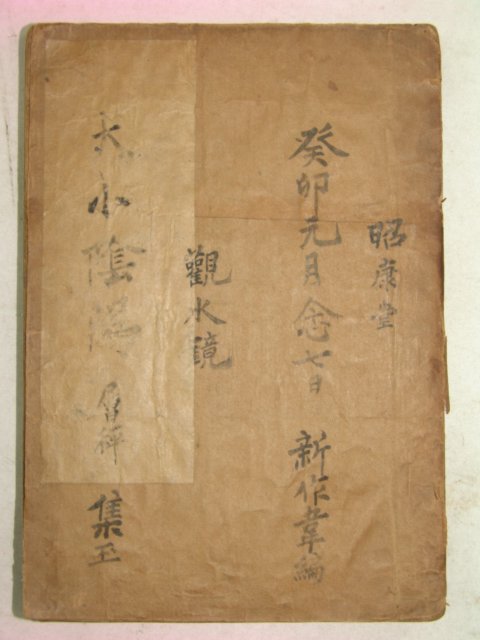 昭康堂
癸卯元月念七日 新作韋編
觀水鏡
小陰陽 集玉